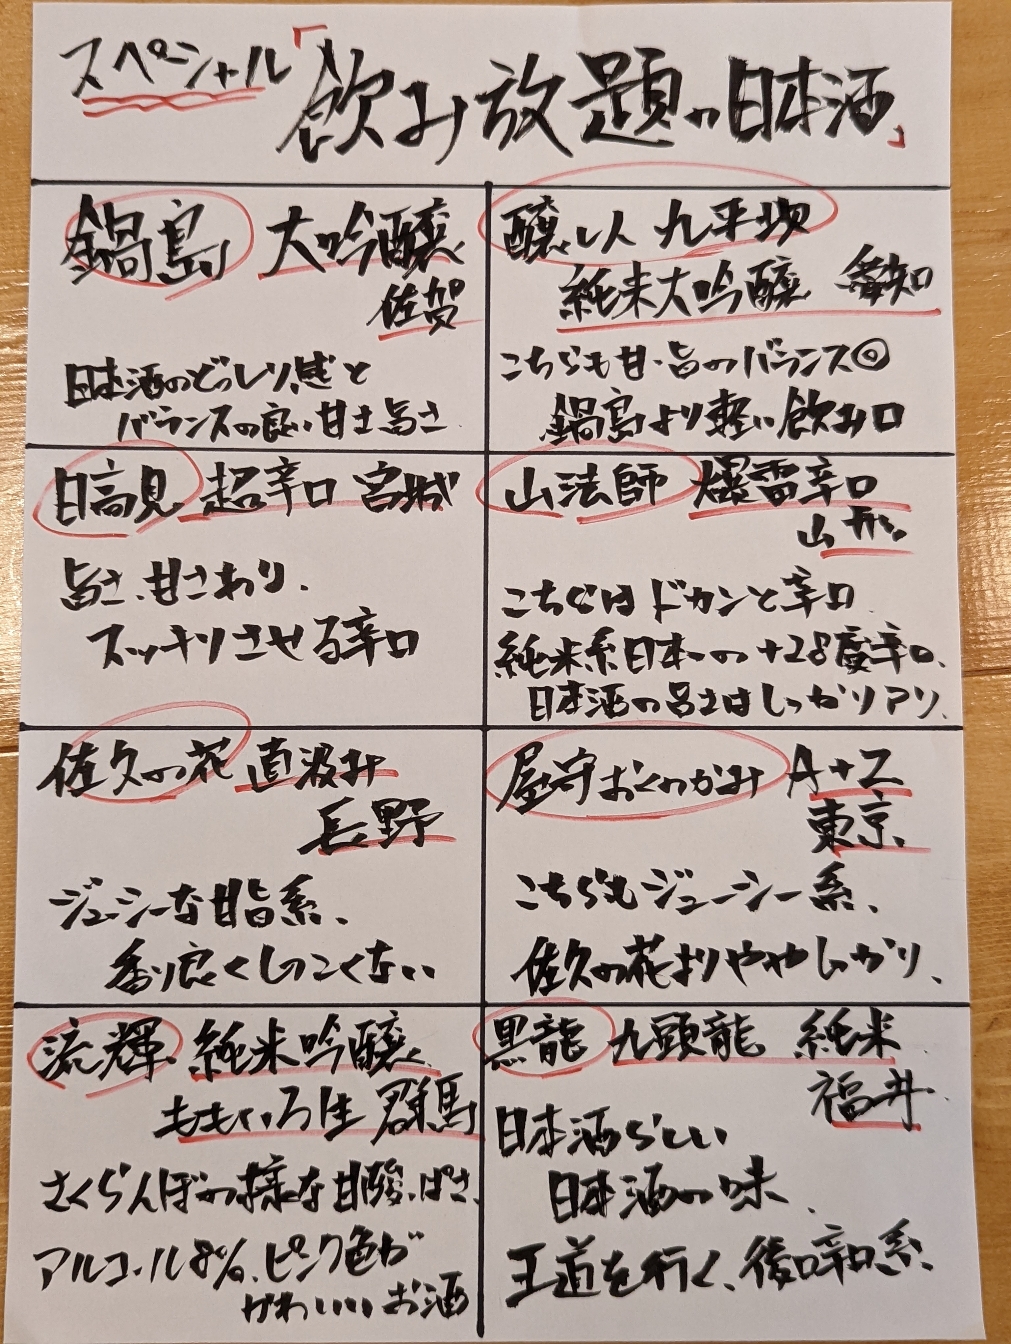 スペシャル「飲み放題の日本酒」
鍋島 大吟醸
佐賀
日本酒のどっしり感と
バランスの良い甘さ旨さ
醸し人 九平次
純米大吟醸 愛知
こちらも甘・旨のバランス◎
鍋島より軽い飲み口
日高見 超辛口 宮城
旨さ、甘さあり、
スッキリさせる辛口
山法師 爆雷辛口
山形
こちらはドカンと辛口
純米系日本一の+28度辛口、
日本酒の旨さはしっかりアリ、
佐久の花 直汲み
長野
ジューシーな甘旨系、
香り良くしつこくない
屋守 おくのかみ A+Z
東京
こちらもジューシー系、
佐久の花よりややしっかり、
流輝 純米吟醸
ももいろ生 群馬
さくらんぼの様な甘酸っぱさ、
アルコール8%、ピンク色が
かわいいお酒
黒龍 九頭龍 純米
福井
日本酒らしい
日本酒の味、
王道を行く、後口辛口系、